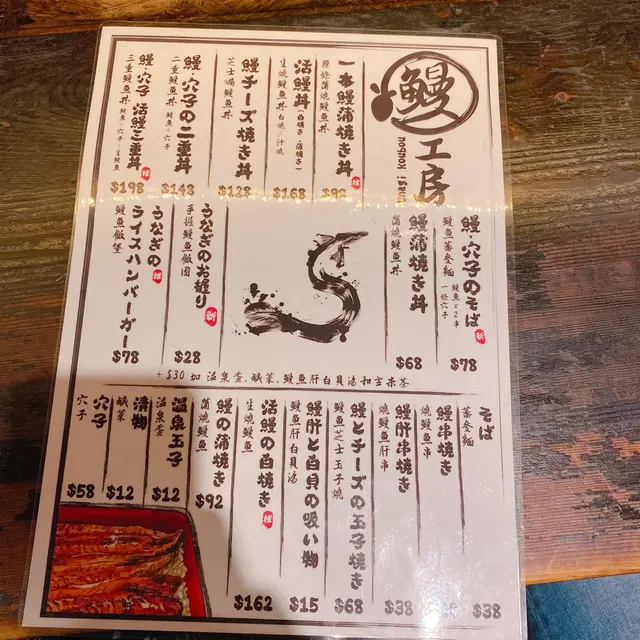 鰻
工房
Unagi Koubou
一本鰻蒲焼き丼 推
原條蒲燒鰻魚丼
$98
活鰻丼(白焼き・蒲焼き)
生燒鰻魚丼 白燒/汁燒
$168
鰻チーズ焼き丼
芝士焗鰻魚丼
$128
鰻・穴子の二重丼
二重鰻魚丼 鰻魚・穴子
$148
鰻・穴子 活鰻三重丼 推
三重鰻魚丼 鰻魚・穴子・生鰻魚
$198
鰻・穴子のそば 新
鰻魚蕎麥麵 鰻魚x2串 一條穴子
$78
鰻蒲焼き丼
蒲燒鰻魚丼
$68
うなぎのお握り 新
手握鰻魚飯團
$28
うなぎの 推
ライスハンバーガー
鰻魚飯堡
$78
+$30 加 温泉蛋,鹹菜,鰻魚肝白貝湯和玄米茶
そば
蕎麥麵
$38
鰻串焼き
燒鰻魚串
鰻肝串焼き
燒鰻魚肝串
$38
鰻とチーズの玉子焼き
鰻魚芝士玉子燒
$68
鰻肝と白貝の吸い物
鰻魚肝白貝湯
$15
活鰻の白焼き 推
生燒鰻魚
$162
鰻の蒲焼き
蒲燒鰻魚
$92
温泉玉子
温泉蛋
$12
漬物
鹹菜
$12
穴子
穴子
$58